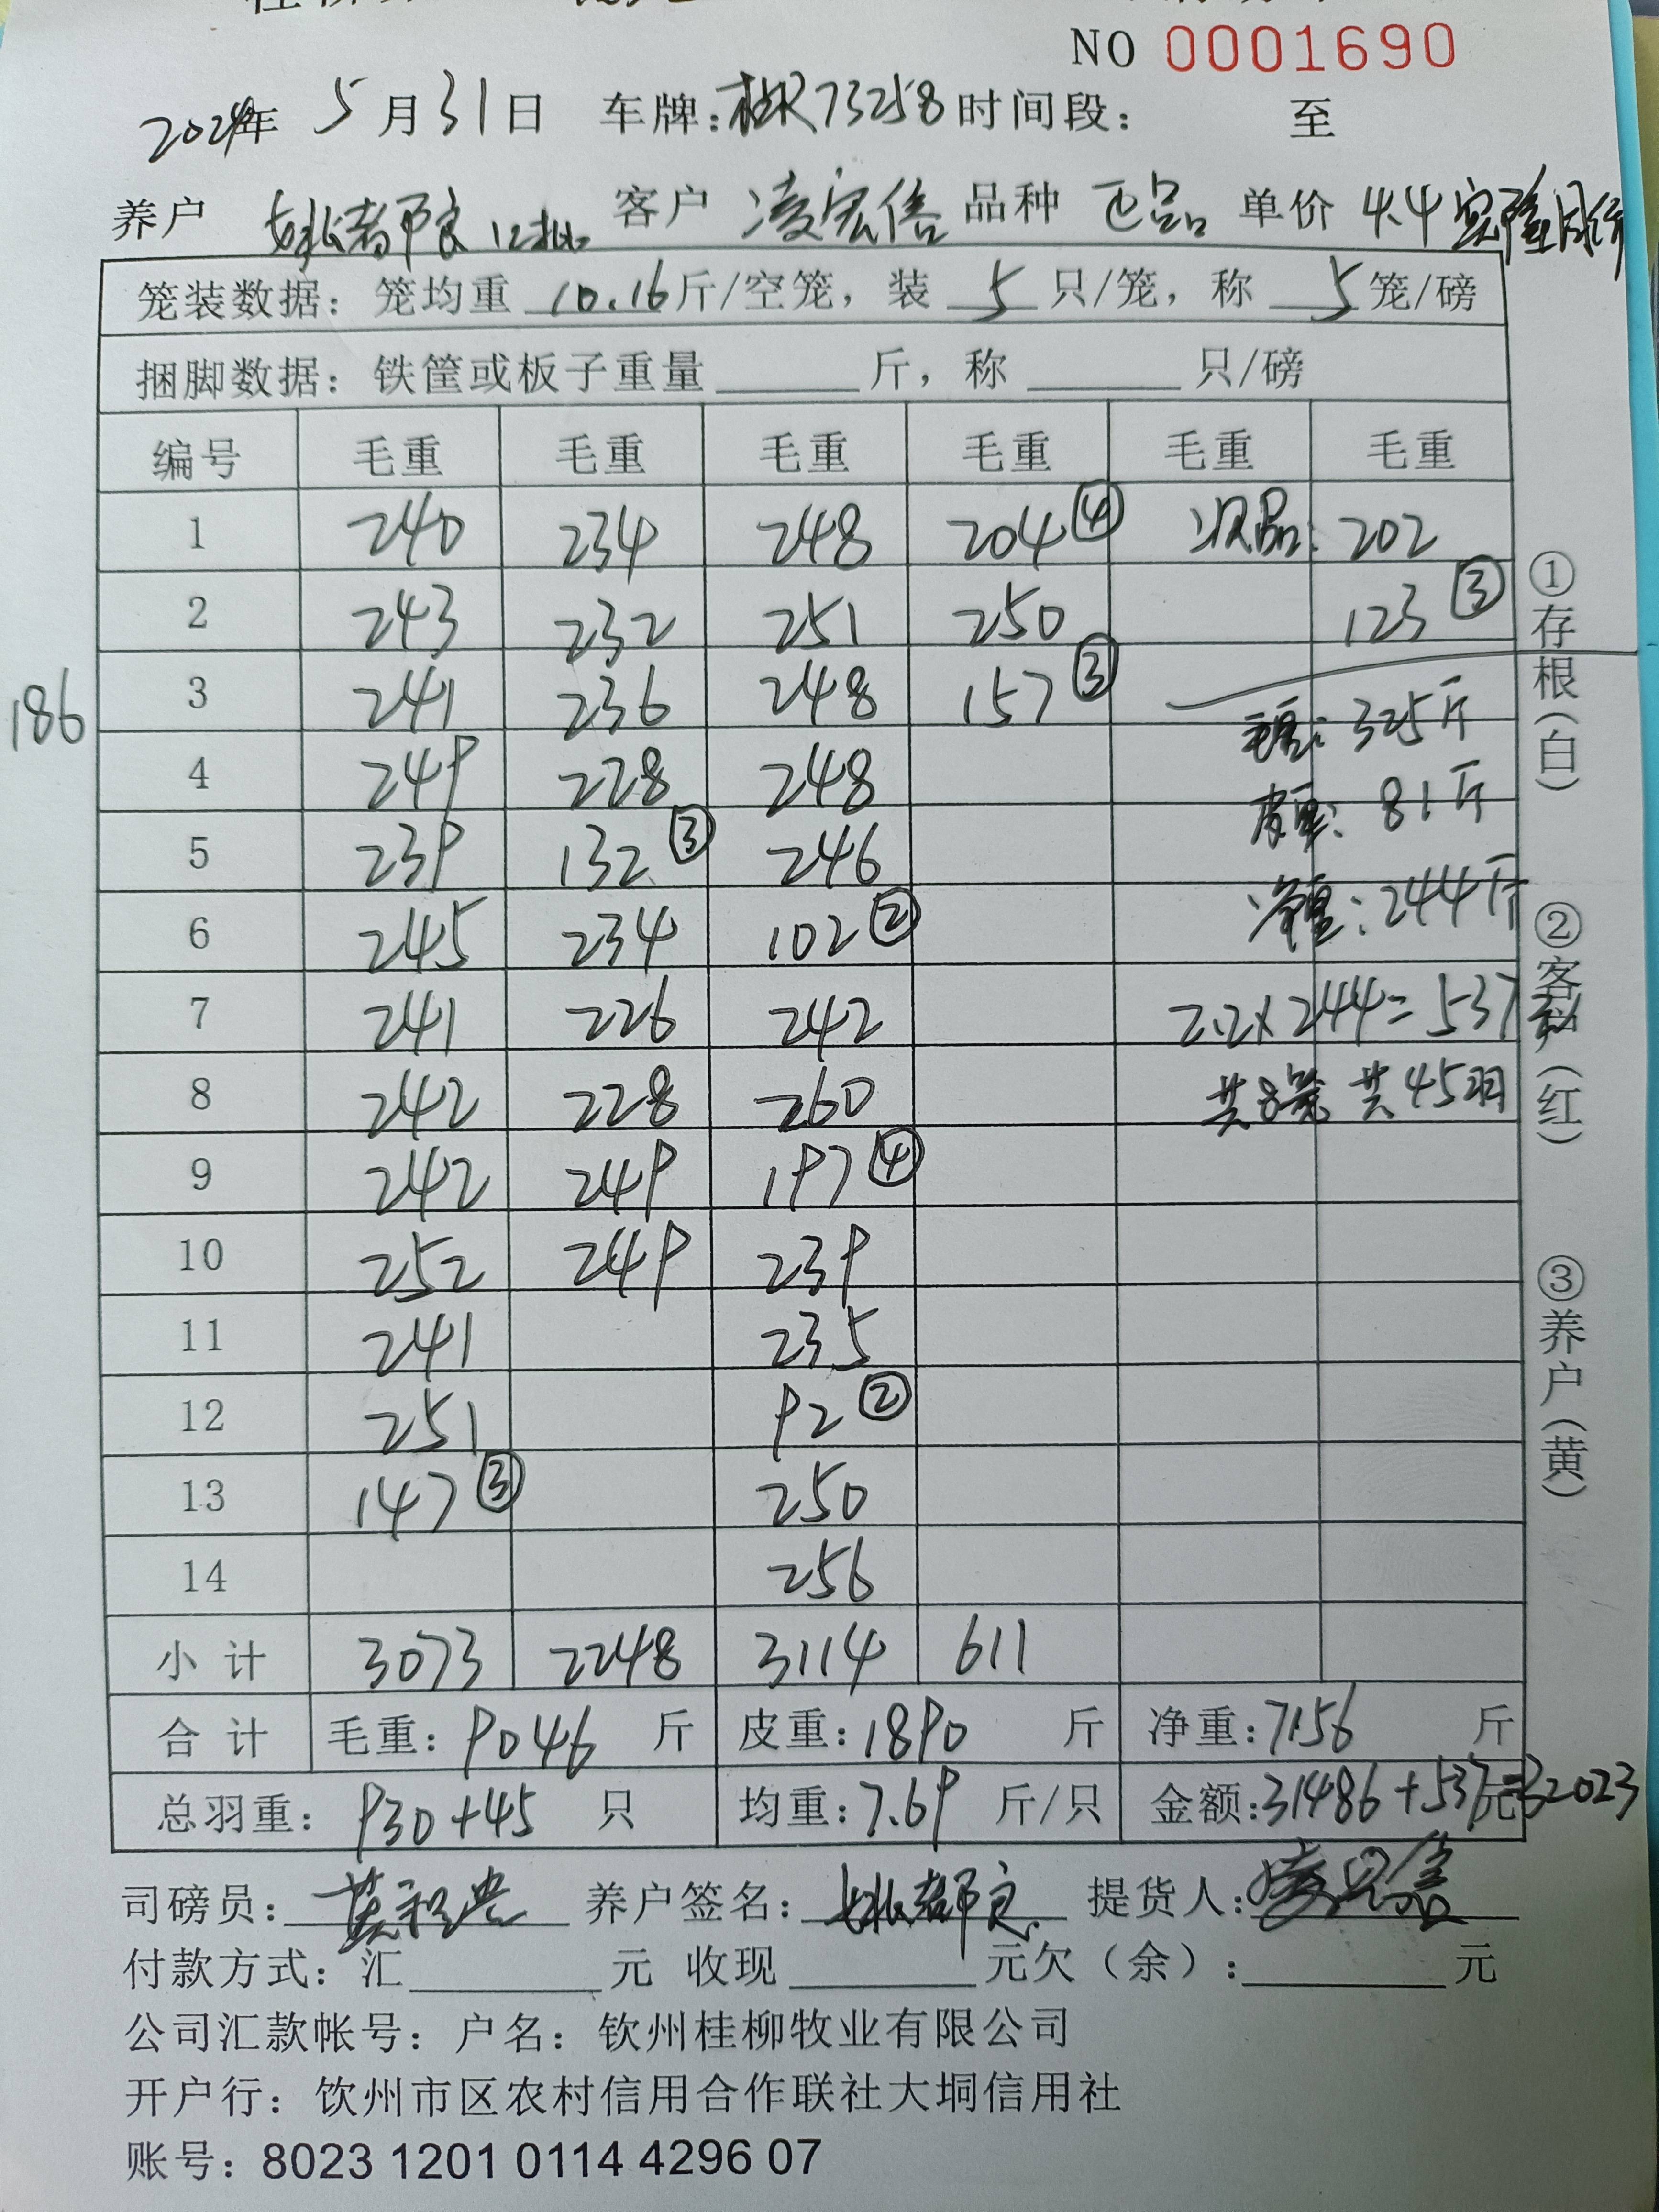 NO 0001690
2024年 5月31日 车牌:桂R73258时间段: 至
养户 姚者邦良 12批 客户 凌宏信 品种 正品 单价 4.4
笼装数据:笼均重 10.16斤/空笼,装 5 只/笼,称 5笼/磅
捆脚数据:铁筐或板子重量 斤,称 只/磅
编号 毛重 毛重 毛重 毛重 毛重 毛重
1 240 234 248 204④ 次品: 202
2 243 232 251 250 123③
186 3 241 236 248 157③
毛重: 325斤
4 249 228 248
皮重: 81斤
5 239 132③ 246
6 245 234 102② 净重:244斤
7 241 226 242 2.2×244=537元
8 242 228 260 共8笼 共45羽
9 242 249 197④
10 252 249 239
11 241 235
12 251 92②
13 147③ 250
14 256
小计 3073 2248 3114 611
合计 毛重:9046 斤 皮重:1890 斤 净重:7156 斤
总羽重: 930+45 只 均重:7.69 斤/只 金额:31486+537元=32023
司磅员: 养户签名: 提货人:
付款方式:汇 元 收现 元欠(余): 元
公司汇款帐号:户名:钦州桂柳牧业有限公司
开户行:饮州市区农村信用合作联社大垌信用社
账号:8023 1201 0114 4296 07
①存根(白) ②客户(红) ③养户(黄)